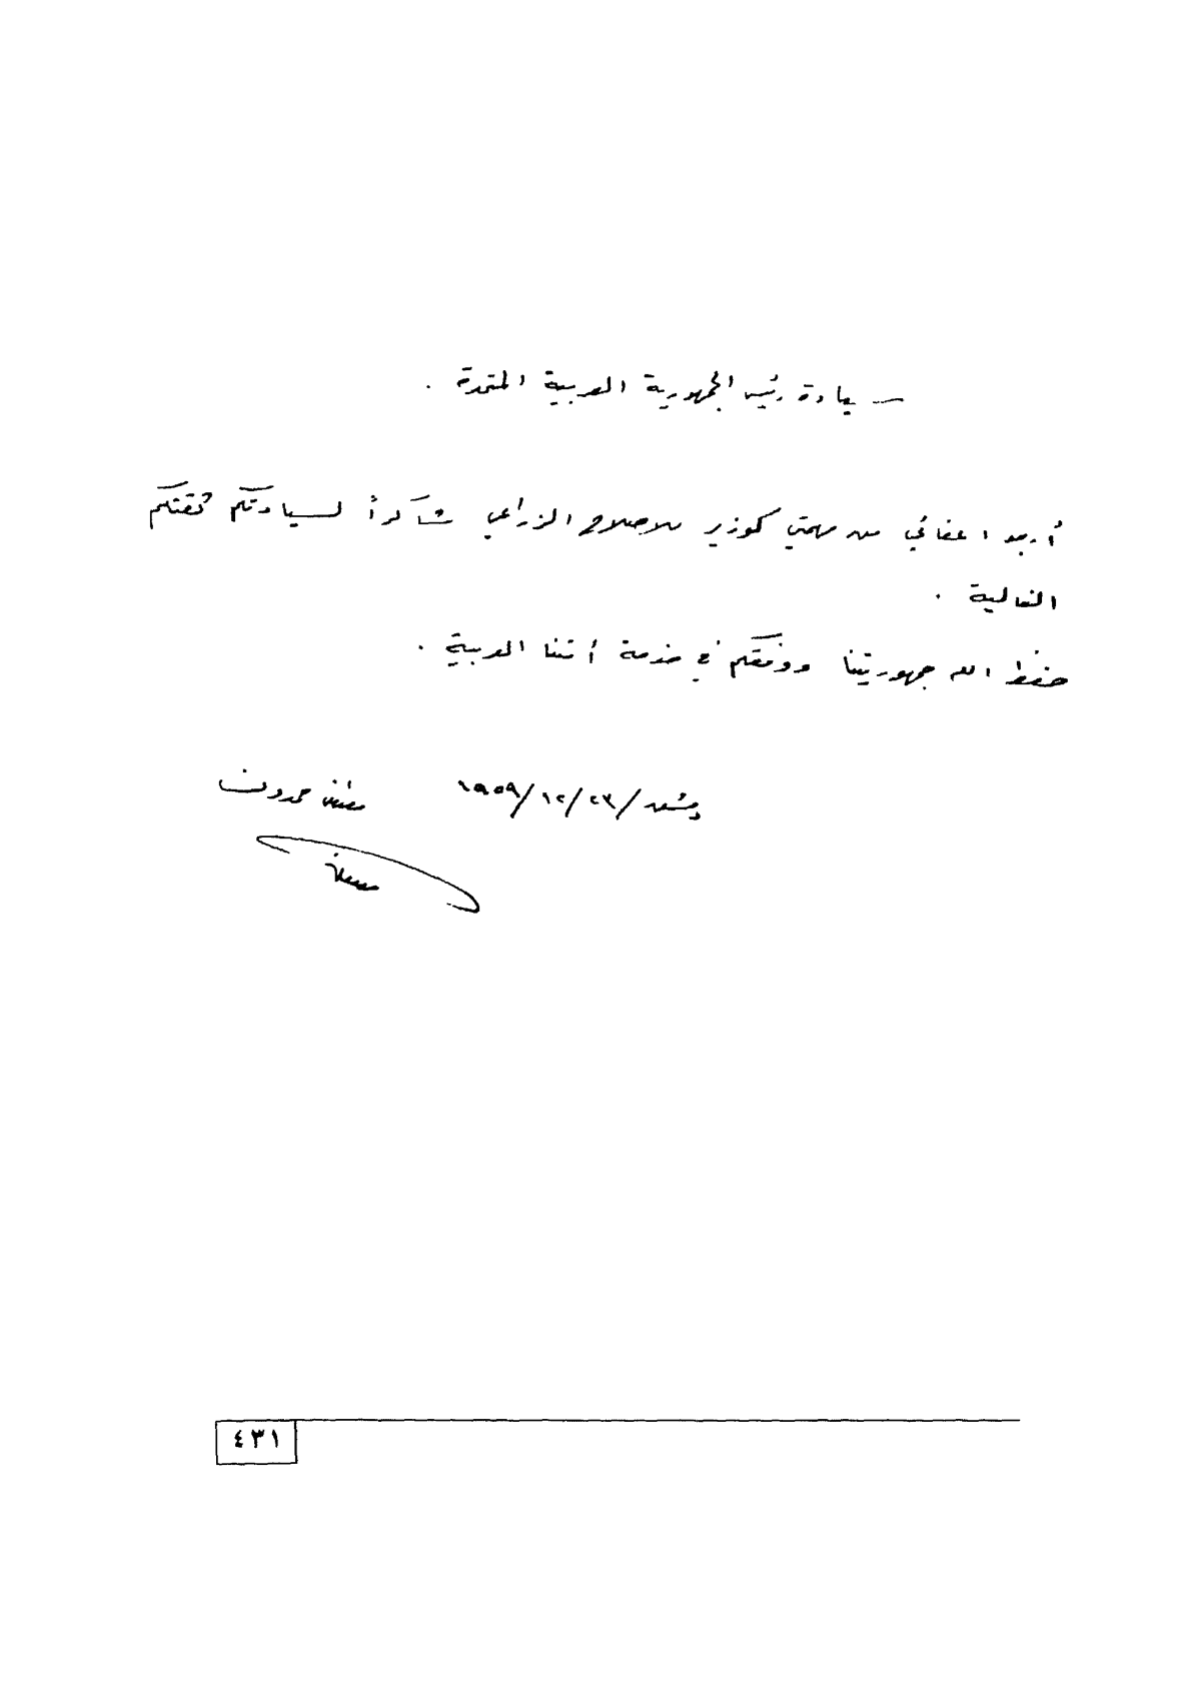 سيادة رئيس الجمهورية العربية المتحدة .
أريد اعفائي من مهمتي كوزير للاصلاح الزراعي شاكراً لسيادتكم ثقتكم
الغالية .
حفظ الله جمهوريتنا ووفقكم في خدمة أمتنا العربية .
دمشق / ٢٣ / ١٢ / ١٩٥٩ مصطفى حمدون
٤٣١